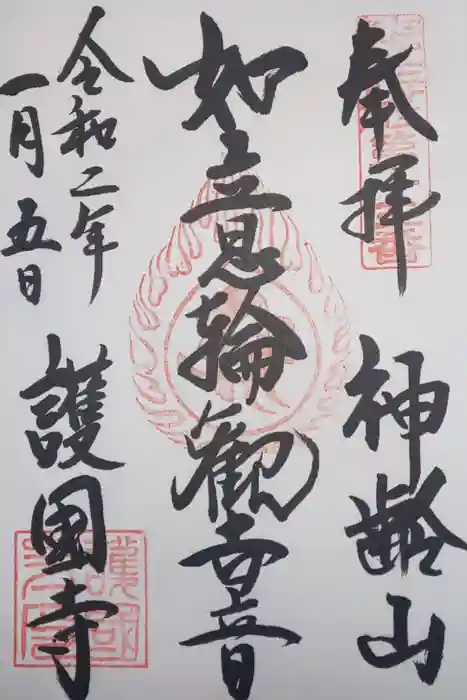 奉拝
神齢山
如意輪観世音
令和二年
一月五日
護國寺
護國